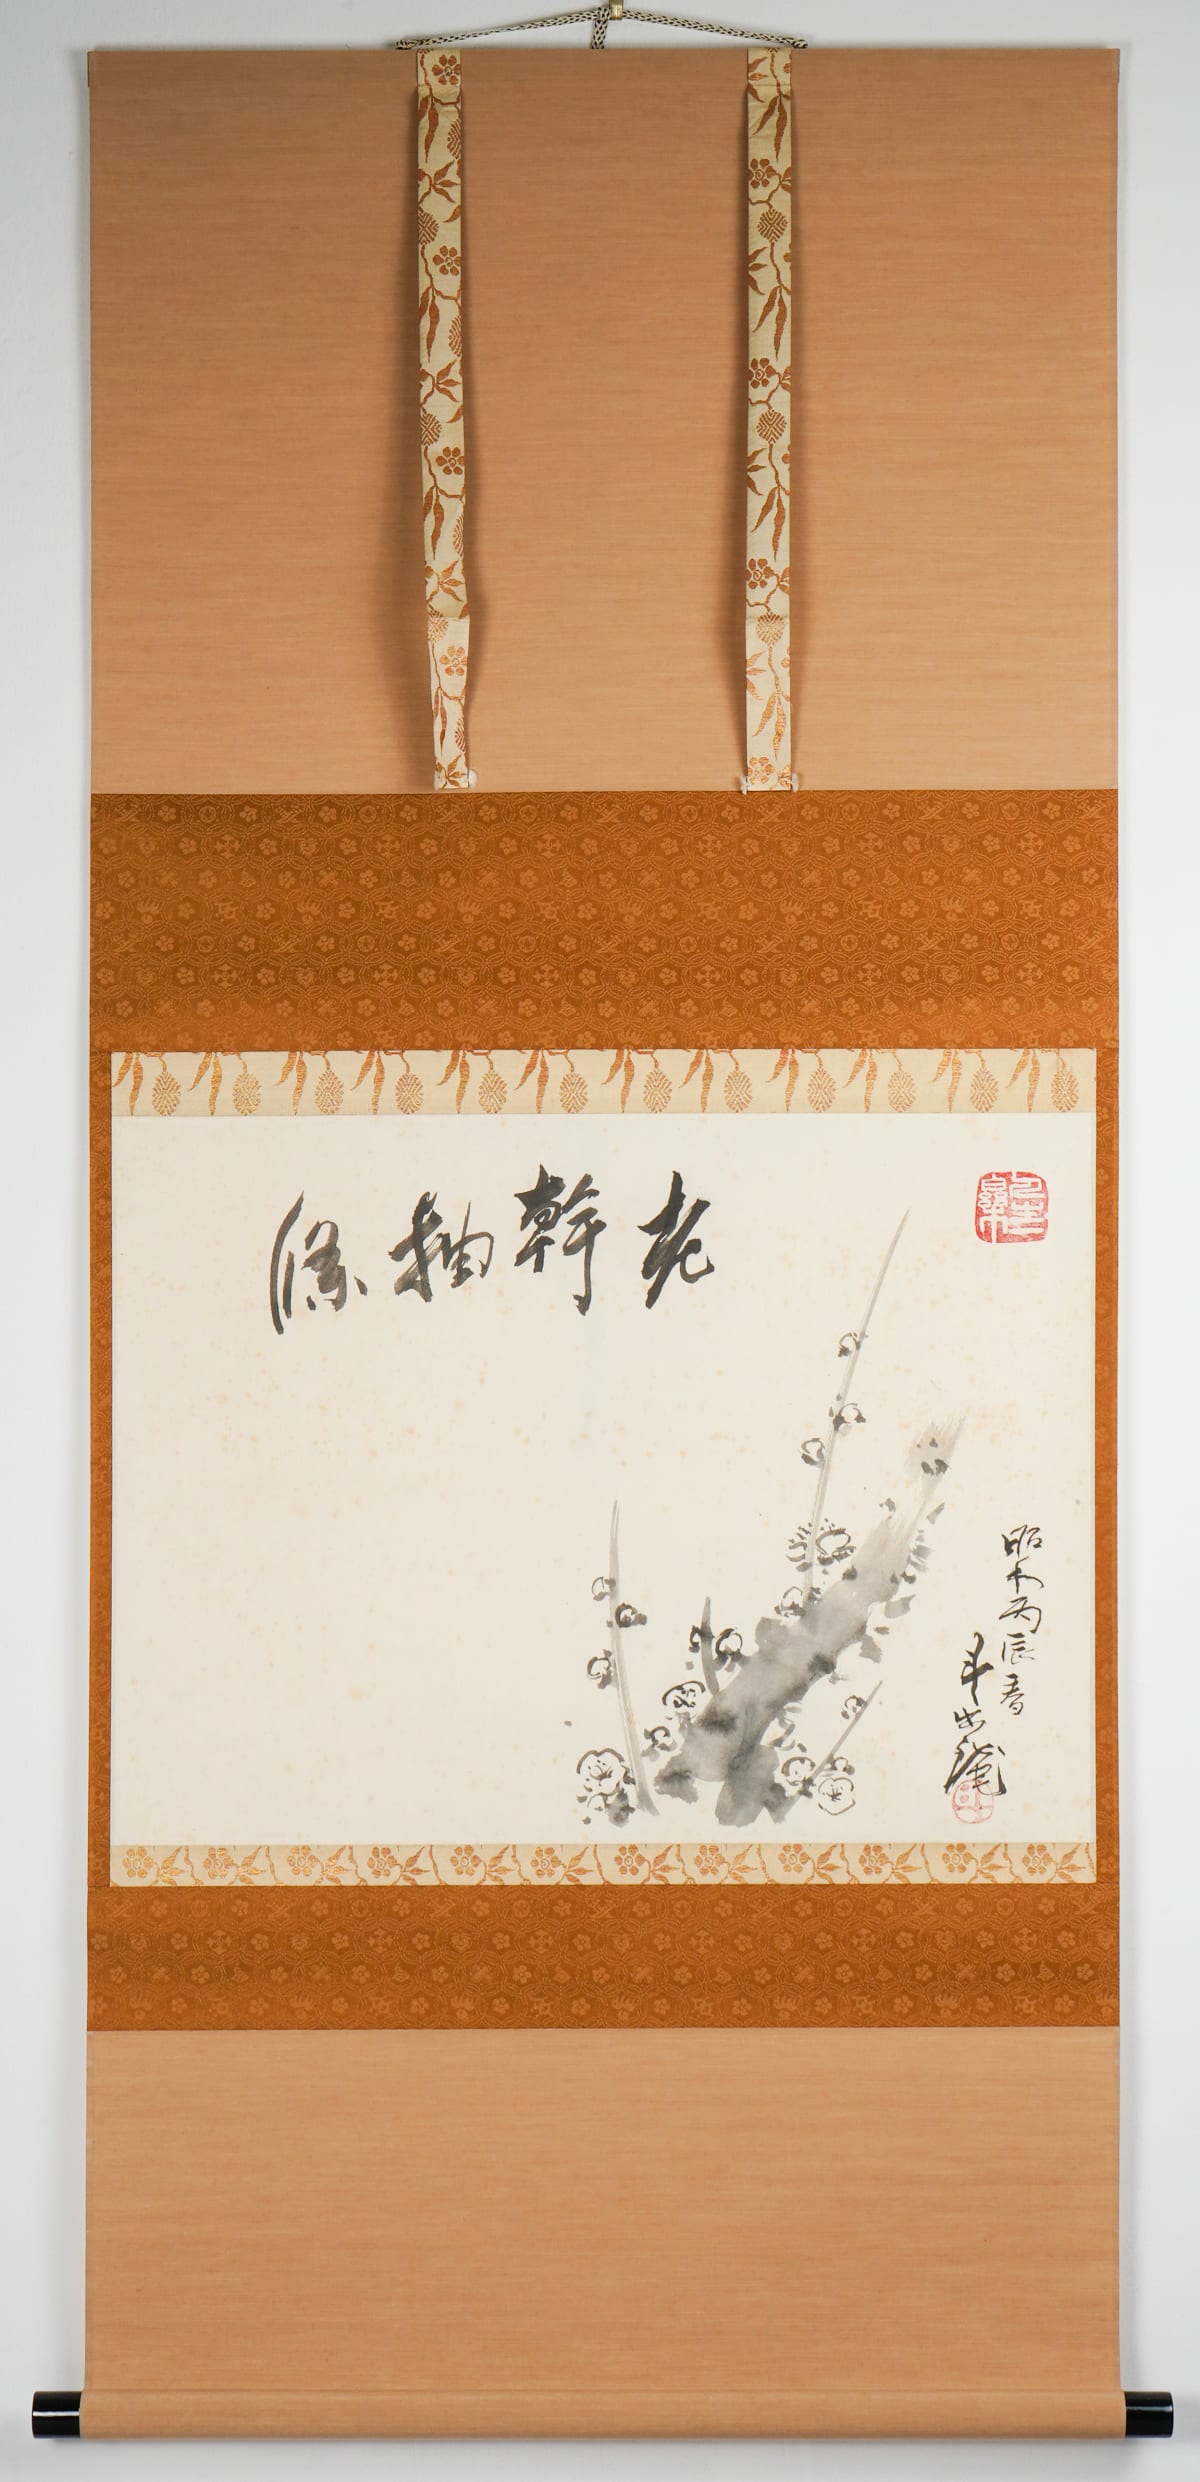 老幹抽條
昭和丙辰春
斗出庵